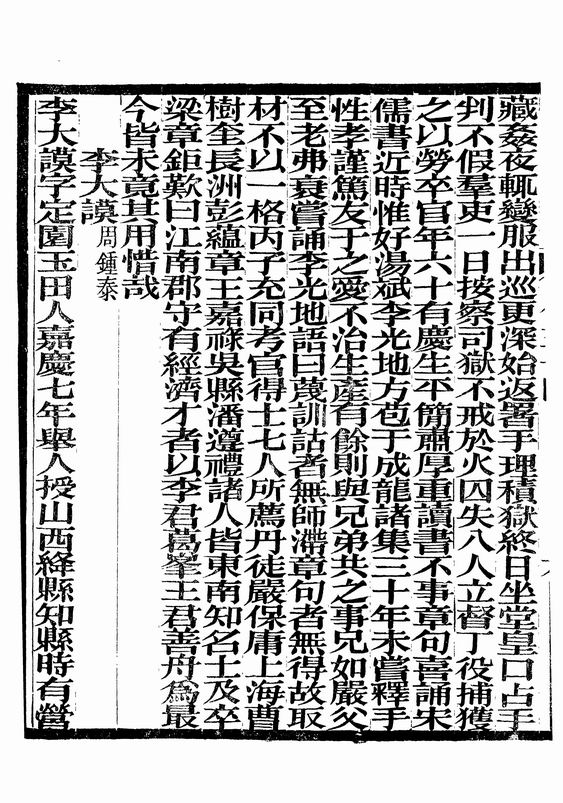 藏姦夜輒變服出巡更深始返署于理積獄終日坐堂皇口占手
判不假羣吏一日按察司獄不戒於火囚失八人立督丁役捕獲
之以勞卒官年六十有慶生平簡肅厚重讀書不事章句喜誦宋
儒書近時惟好湯斌李光地方苞于成龍諸集三十年未嘗釋手
性孝謹篤友于之愛不治生產有餘則與兄弟共之事兄如嚴父
至老弗衰嘗誦李光地語曰蔑訓詁者無師滯章句者無得故取
材不以一格丙子充同考官得士七人所薦丹徒嚴保庸上海曹
樹奎長洲彭蘊章王嘉祿吳縣潘遵禮諸人皆東南知名士及卒
梁章鉅歎曰江南郡守有經濟才者以李君葛峯王君善舟爲最
今皆未竟其用惜哉
李大謨周鍾泰
李大謨字定園玉田人嘉慶七年舉人授山西絳縣知縣時有營